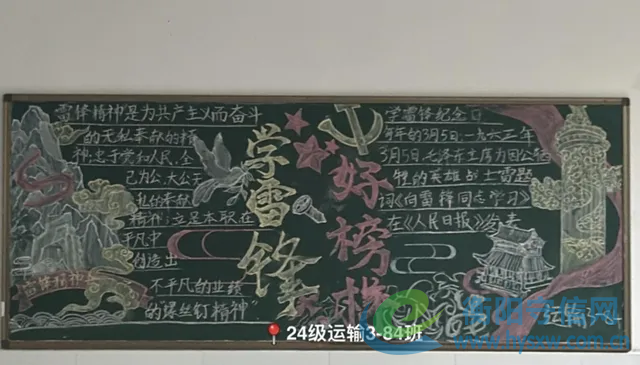 雷锋精神是为共产主义而奋斗
的无私奉献的精
神;忠于党和人民、全
己为公、大公无
私的奉献
精神;立足本职、在
平凡中
创造出
不平凡的业绩
的"螺丝钉精神"
雷锋精神
学雷锋
好榜样
学雷锋纪念日
每年的3月5日,一九六三年
3月5日,毛泽东主席为因公牺
牲的英雄战士雷锋题
词《向雷锋同志学习》
在《人民日报》发表
运输3-84
24级运输3-84班
衡阳守信网
www.hysxw.com.cn